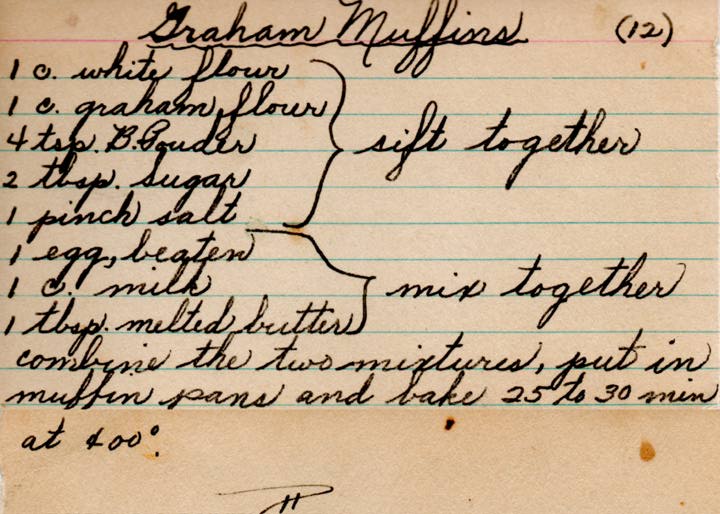 Graham Muffins (12)
1 c. white flour
1 c. graham flour
4 tsp. B. Powder
sift together
2 tbsp. sugar
1 pinch salt
1 egg, beaten
1 c. milk
mix together
1 tbsp. melted butter
combine the two mixtures, put in
muffin pans and bake 25 to 30 min
at 400°.